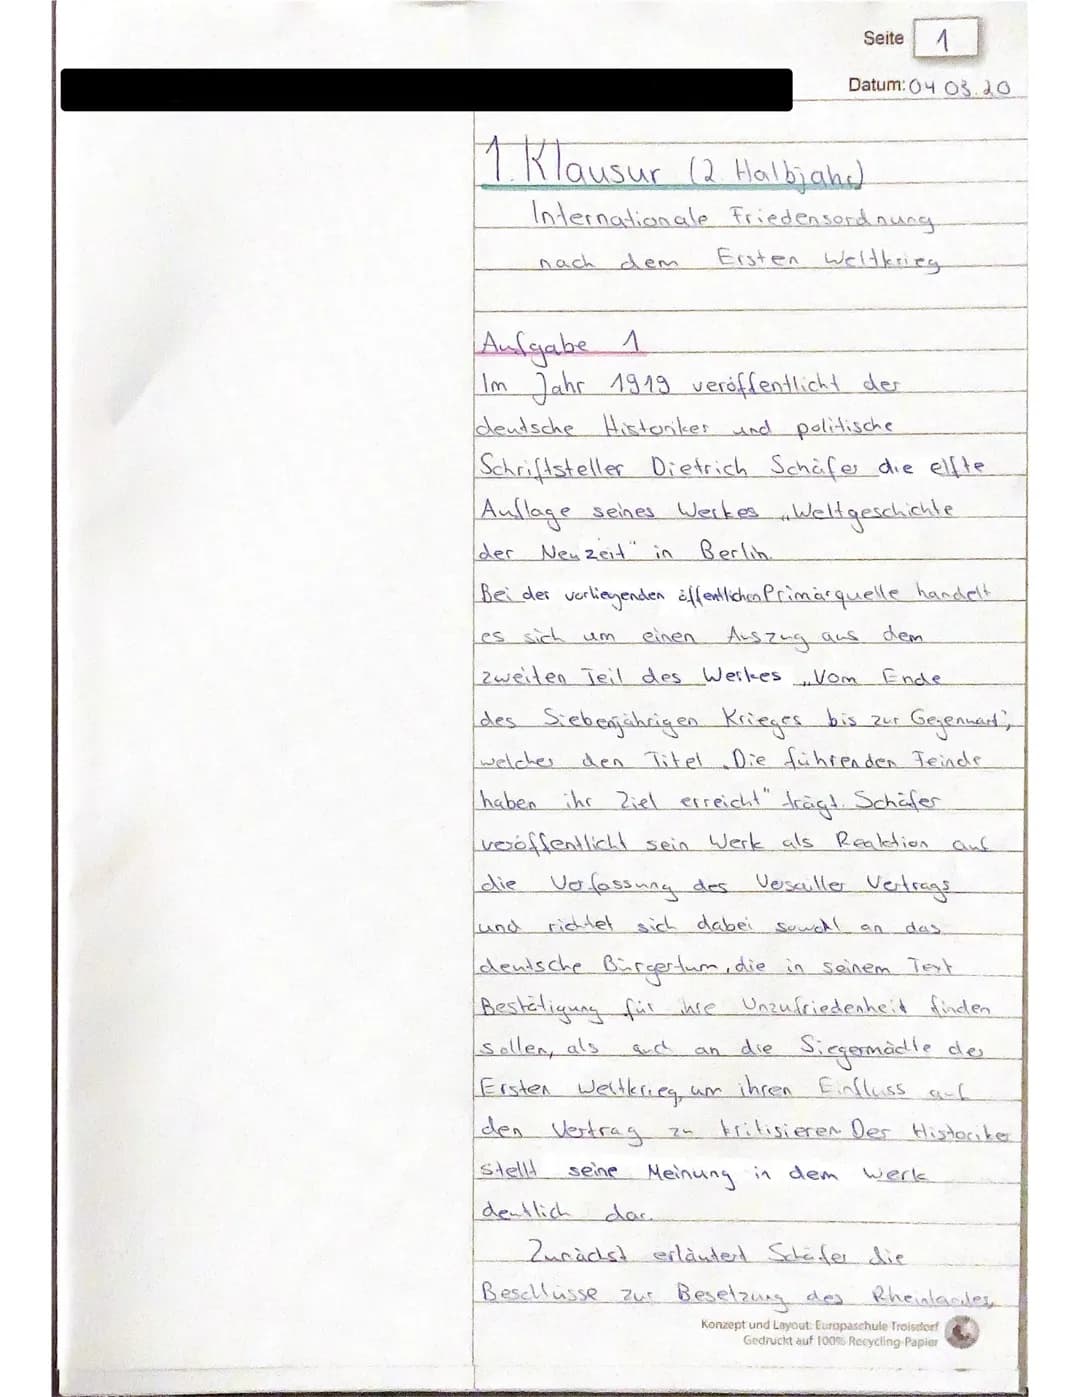 Seite 1
Datum: 04 03.20
1. Klausur (2. Halbjahr)
Internationale Friedensordnung
nach dem Ersten Weltkrieg
Aufgabe 1
Im Jahr 1919 veröffentlicht der
deutsche Historiker und politische
Schriftsteller Dietrich Schäfer die elfte
Auflage seines Werkes „Weltgeschichte
der Neuzeit" in Berlin.
Bei der vorliegenden öffentlichen Primärquelle handelt
es sich um einen Auszug aus dem
zweiten Teil des Werkes „Vom Ende
des Siebenjährigen Krieges bis zur Gegenwart",
welcher den Titel „Die führenden Feinde
haben ihr Ziel erreicht" trägt. Schäfer
veröffentlicht sein Werk als Reaktion auf
die Verfassung des Versailler Vertrags
und richtet sich dabei sowohl an das
deutsche Bürgertum, die in seinem Text
Bestätigung für ihre Unzufriedenheit finden
sollen, als auch an die Siegermächte des
Ersten Weltkrieg, um ihren Einfluss auf
den Vertrag zu kritisieren. Der Historiker
stellt seine Meinung in dem Werk
deutlich dar.
Zunächst erläutert Schäfer die
Beschlüsse zur Besetzung des Rheinlandes,
Konzept und Layout: Europaschule Troisdorf
Gedruckt auf 100% Recycling-Papier